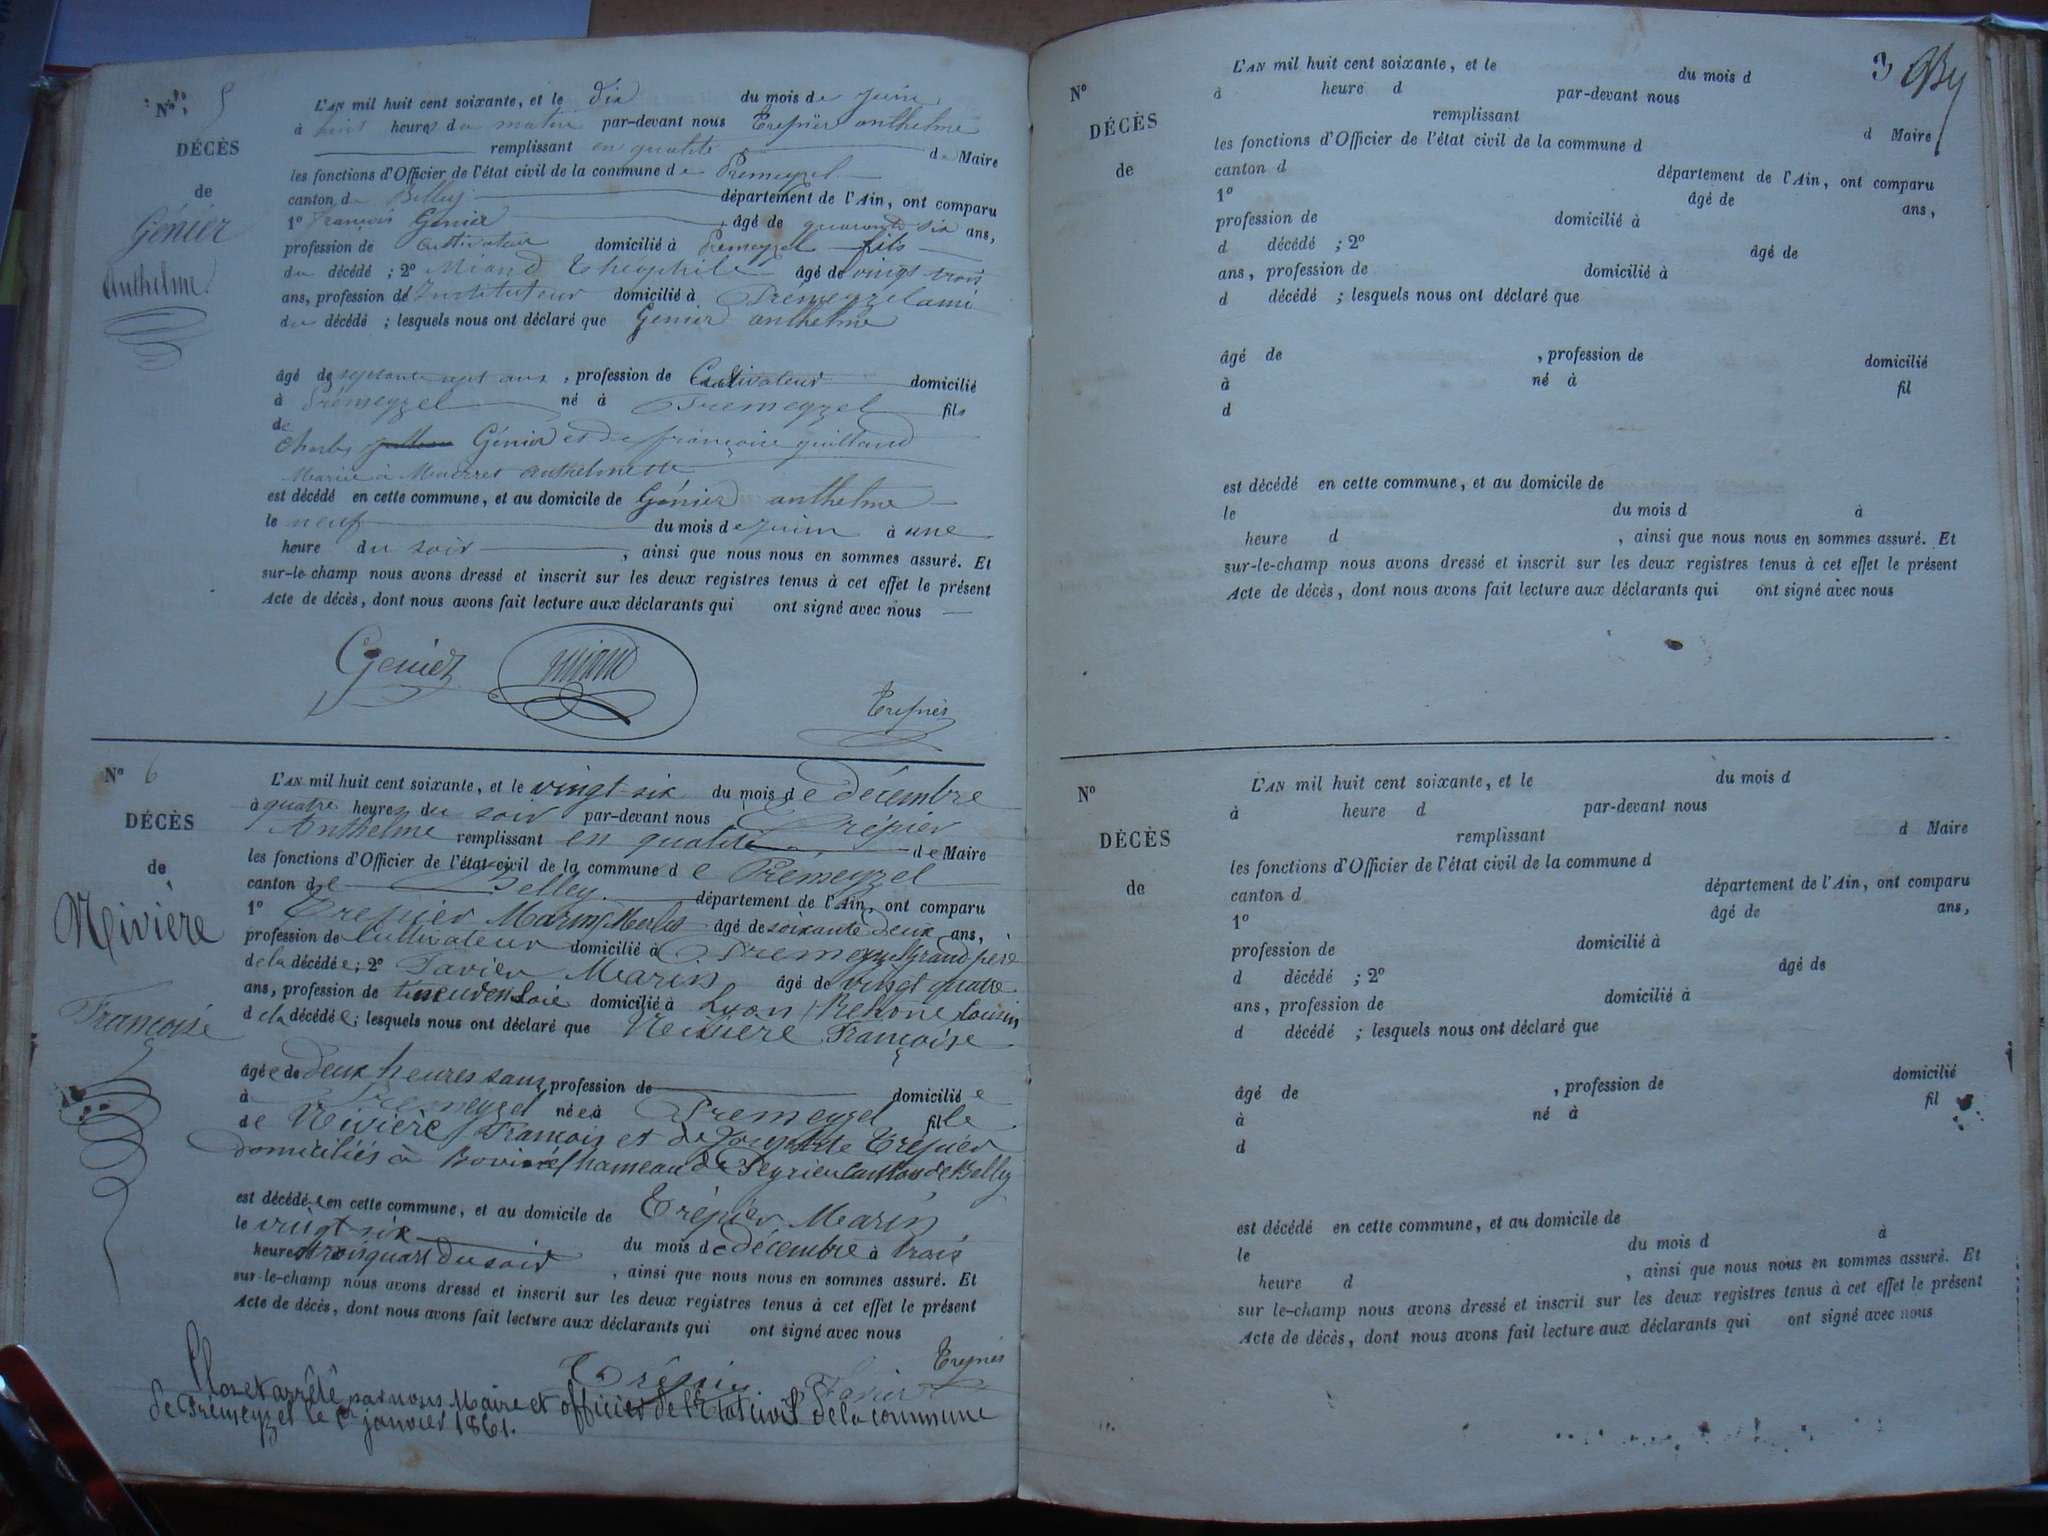 N° 5
DÉCÈS
de
Génier
Anthelme
L'AN mil huit cent soixante, et le dix du mois de juin
à huit heures du matin par-devant nous Trepier anthelme
remplissant en qualité de Maire
les fonctions d'Officier de l'état civil de la commune de Premeyzel
canton de Belley département de l'Ain, ont comparu
1° François Génier âgé de quarante six ans,
profession de cultivateur domicilié à Premeyzel fils
du décédé ; 2° Miand Théophile âgé de vingt trois
ans, profession de Instituteur domicilié à Premeyzel ami
du décédé ; lesquels nous ont déclaré que Génier anthelme
âgé de septante sept ans , profession de Cultivateur domicilié
à Prémeyzel né à Premeyzel fils
de
Charles Génier et de françoise guilland
Marié à anthelmette
est décédé en cette commune, et au domicile de Génier anthelme
le neuf du mois de juin à une
heure du soir , ainsi que nous nous en sommes assuré. Et
sur-le-champ nous avons dressé et inscrit sur les deux registres tenus à cet effet le présent
Acte de décès, dont nous avons fait lecture aux déclarants qui ont signé avec nous
Genier miand
Trepier
N° 6
DÉCÈS
de
Rivière
Françoise
L'AN mil huit cent soixante, et le vingt six du mois de décembre
à quatre heures du soir par-devant nous Trépier
Anthelme remplissant en qualité de Maire
les fonctions d'Officier de l'état civil de la commune de Prémeyzel
canton de Belley département de l'Ain, ont comparu
1° Trepier Marin âgé de soixante deux ans,
profession de Cultivateur domicilié à Premeyzel grand père
de la décédée ; 2° Favier Marin âgé de vingt quatre
ans, profession de domicilié à Lyon Rhône Cousin
de la décédée ; lesquels nous ont déclaré que Rivière Françoise
âgée de deux heures sans profession de domiciliée
à Premeyzel née à Premeyzel fille
de Rivière François et de Trépier
domiciliés à hameau de Peyrieu Canton de Belley
est décédée en cette commune, et au domicile de Trépier Marin
le vingt six du mois de décembre à trois
heures trois quart du soir , ainsi que nous nous en sommes assuré. Et
sur-le-champ nous avons dressé et inscrit sur les deux registres tenus à cet effet le présent
Acte de décès, dont nous avons fait lecture aux déclarants qui ont signé avec nous
Trepier
Trépier Favier
Clos et arrêté par nous Maire et officier de l'Etat civil de la commune
de Premeyzel le 1er janvier 1861.
3
N°
DÉCÈS
de
L'AN mil huit cent soixante, et le du mois d
à heure d par-devant nous
remplissant d Maire
les fonctions d'Officier de l'état civil de la commune d
canton d département de l'Ain, ont comparu
1° âgé de ans,
profession de domicilié à
d décédé ; 2° âgé de
ans, profession de domicilié à
d décédé ; lesquels nous ont déclaré que
âgé de , profession de domicilié
à né à fil
d
est décédé en cette commune, et au domicile de
le du mois d à
heure d , ainsi que nous nous en sommes assuré. Et
sur-le-champ nous avons dressé et inscrit sur les deux registres tenus à cet effet le présent
Acte de décès, dont nous avons fait lecture aux déclarants qui ont signé avec nous
N°
DÉCÈS
de
L'AN mil huit cent soixante, et le du mois d
à heure d par-devant nous
remplissant d Maire
les fonctions d'Officier de l'état civil de la commune d
canton d département de l'Ain, ont comparu
1° âgé de ans,
profession de domicilié à
d décédé ; 2° âgé de
ans, profession de domicilié à
d décédé ; lesquels nous ont déclaré que
âgé de , profession de domicilié
à né à fil
d
est décédé en cette commune, et au domicile de
le du mois d à
heure d , ainsi que nous nous en sommes assuré. Et
sur le-champ nous avons dressé et inscrit sur les deux registres tenus à cet effet le présent
Acte de décès, dont nous avons fait lecture aux déclarants qui ont signé avec nous